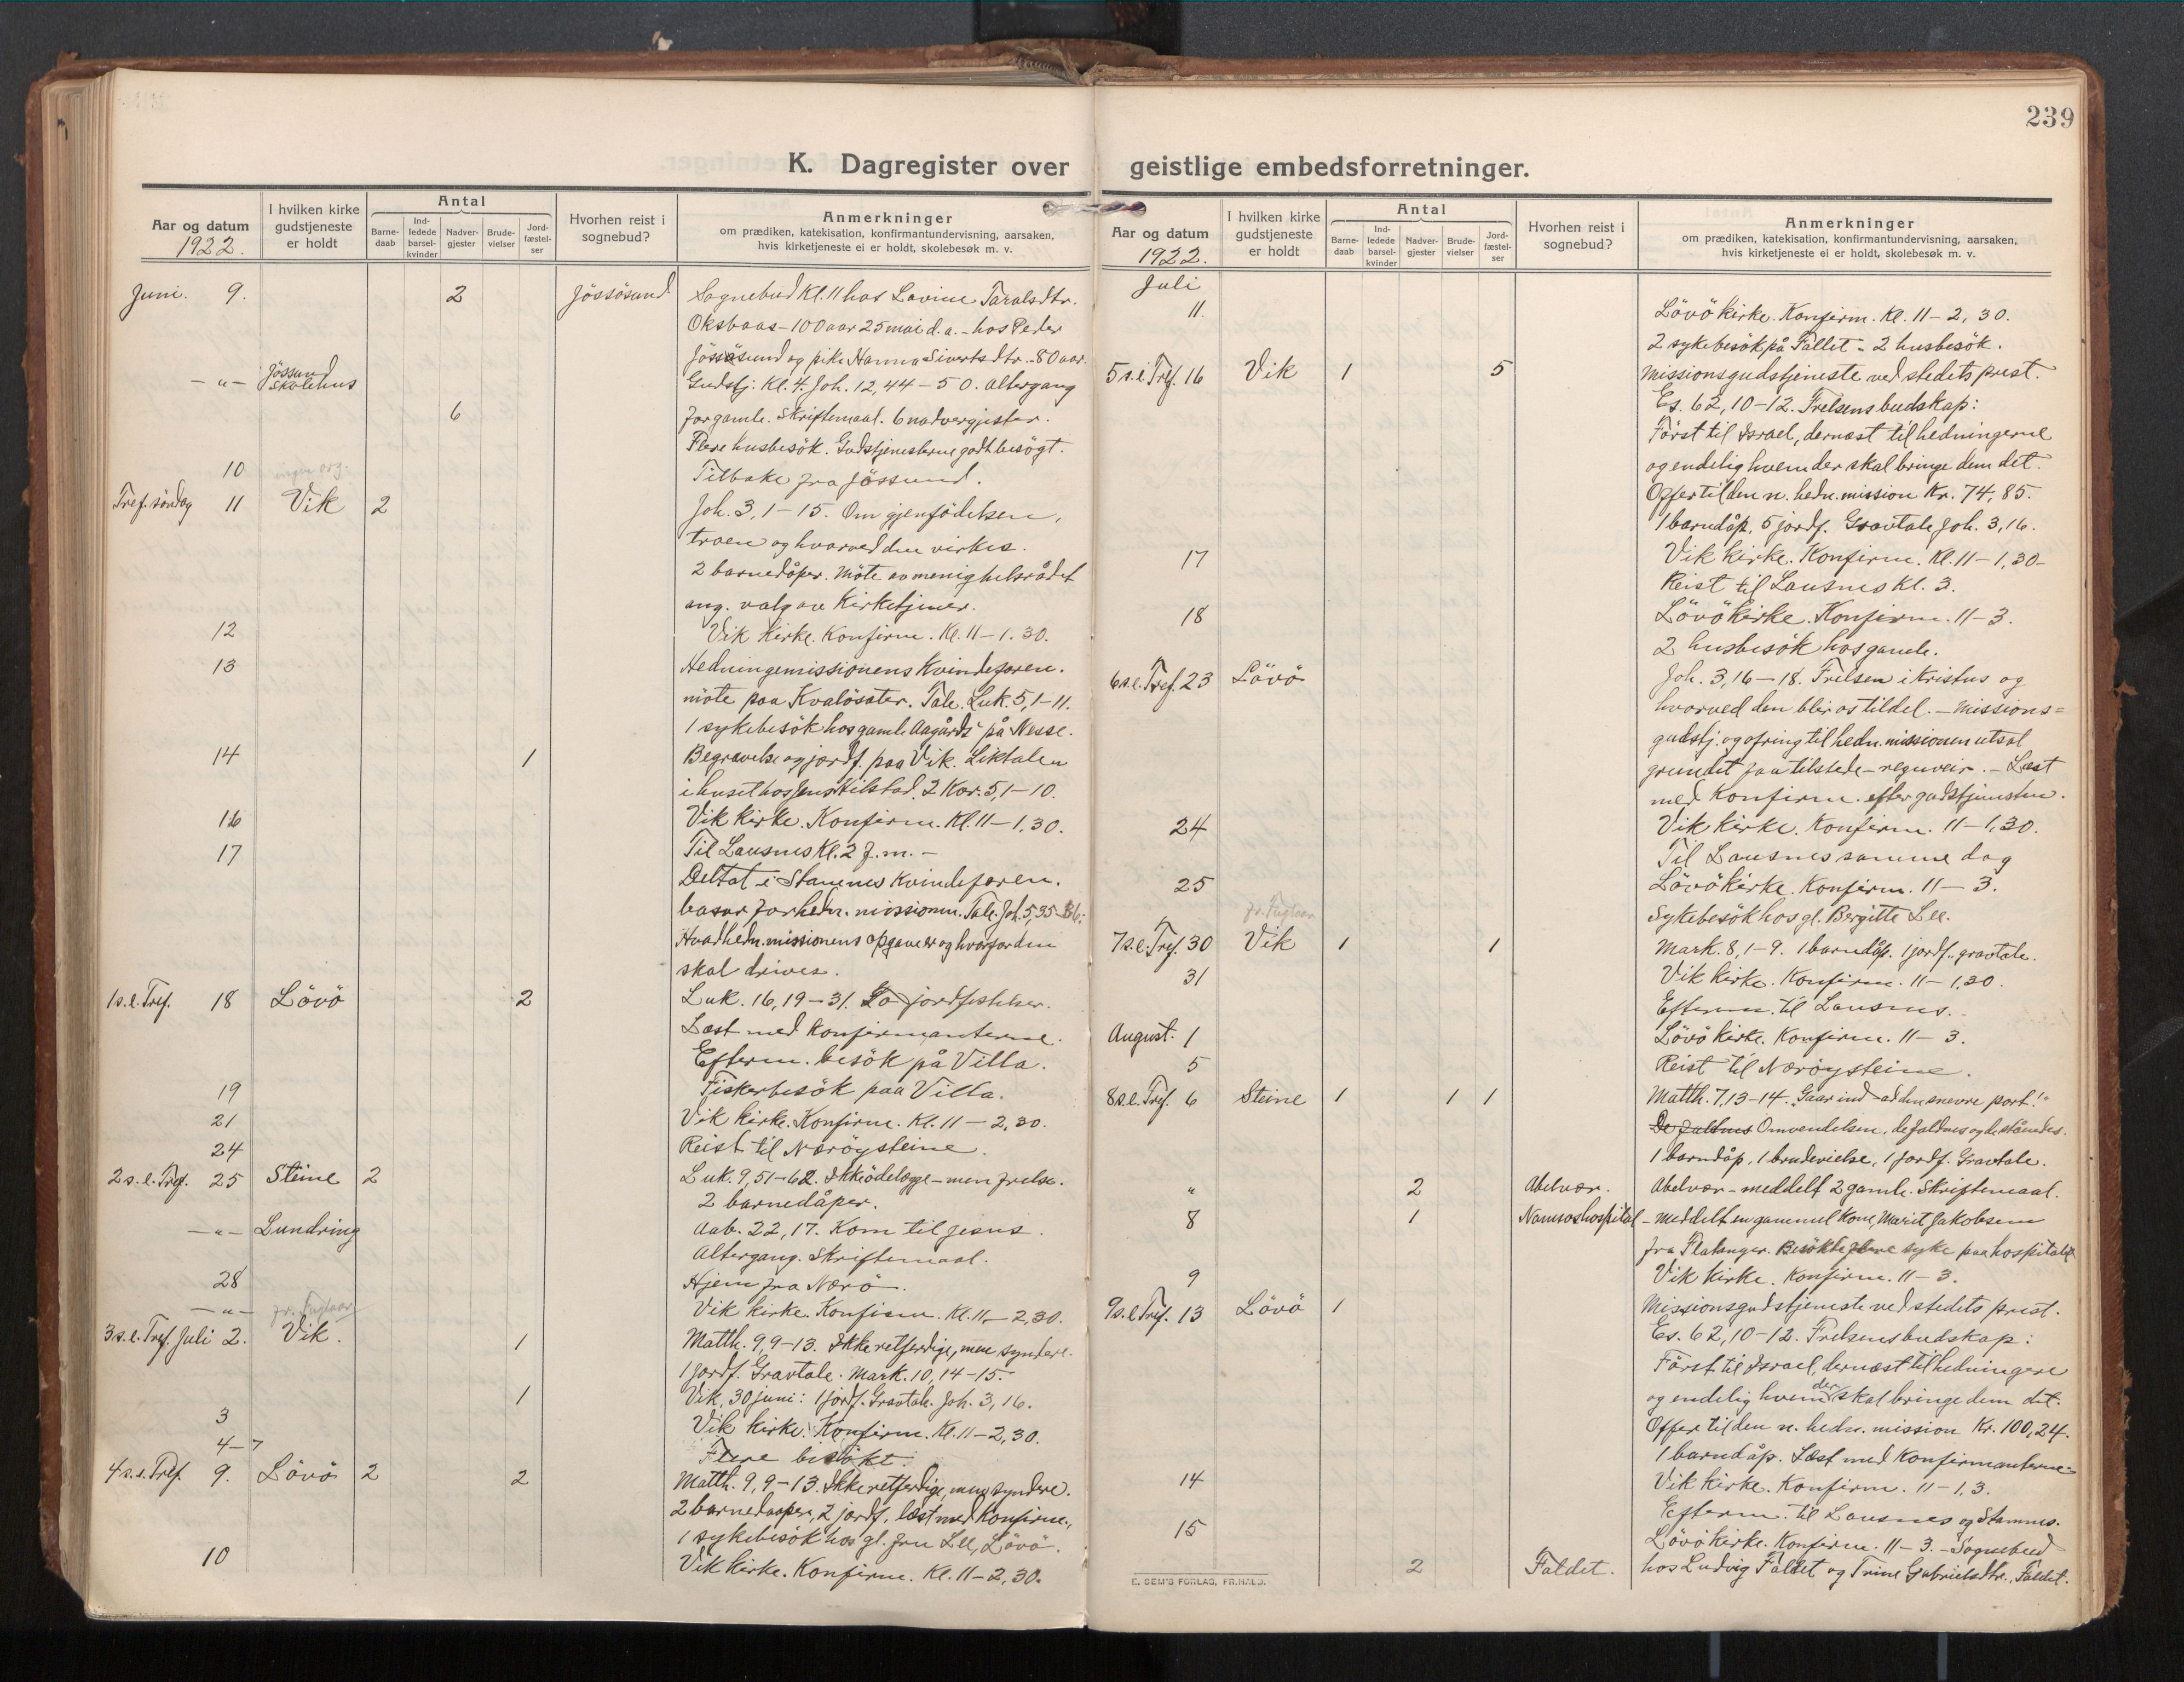 239
K. Dagregister over geistlige embedsforretninger.
Aar og datum
1922.
I hvilken kirke gudstjeneste er holdt
Antal
Barne-daab
Ind-ledede barsel-kvinder
Nadver-gjester
Brude-vielser
Jord-fæstel-ser
Hvorhen reist i sognebud?
Anmerkninger
om prædiken, katekisation, konfirmantundervisning, aarsaken,
hvis kirketjeneste ei er holdt, skolebesøk m. v.
Juni. 9. 2 Jössösund Sognebud Kl. 11 hos Lovine Taralsdtr.
Oksbaas - 100 aar 25 mai d.a. - hos Peder
Jössösund og pike Hanna Sivertsdtr. - 80 aar.
- " - Jössund skolehus Gudstj. Kl. 4. Joh. 12, 44-50. altergang
6 for gamle. Skriftemaal. 6 nadvergjester.
Flere husbesök. Gudstjenesterne godt besögt.
10 Tilbake fra Jössund.
ingen org.
Tref. söndag 11 Vik 2 Joh. 3, 1-15. Om gjenfödelsen,
troen og hvorved den virkes.
2 barnedåper. Möte av menighetsrådet
ang. valg av Kirketjener.
12 Vik Kirke. Konfirm. Kl. 11-1.30.
13 Hedningemissionens Kvindeforen.
möte paa Kvalösæter. Tale. Luk. 5, 1-11.
1 sykebesök hos gamle Aagårds på Nesse.
14 1 Begravelse og jordf. paa Vik. Liktalen
i huset hos Jens Kilstad. 2 Kor. 5, 1-10.
16 Vik kirke. Konfirm. Kl. 11-1,30.
17 Til Lausnes Kl. 2 f.m. -
Deltat i Stamnes Kvindeforen.
basar for hedn. missionen. Tale. Joh. 5, 35-36:
Hvad hedn. missionens opgave er og hvorfor den
skal drives.
1 s.e. Tref. 18 Lövö 2 Luk. 16, 19-31. To jordfestelser.
Læst med Konfirmanterne.
Efterm. besök på Villa.
19 Fiskerbesök paa Villa.
21 Vik kirke. Konfirm. Kl. 11-2.30.
24 Reist til Nærøysteine.
2 s.e. Tref. 25 Steine 2 Luk. 9, 51-62. Ikke ödelægge - men frelse.
2 barnedåper.
- " - Lundring Aab. 22, 17. Kom til Jesus.
Altergang. Skriftemaal.
28 Hjem fra Nærö.
- " - Vik kirke. Konfirm. Kl. 11-2,30.
fr. Fuglaar
3 s.e. Tref. Juli 2. Vik. 1 Matth. 9, 9-13. Ikke retferdige, men syndere.
1 jordf. Gravtale. Mark. 10, 14-15.
1 Vik, 30 juni: 1 jordf. Gravtale. Joh. 3, 16.
3 Vik kirke. Konfirm. Kl. 11-2,30.
4-7 Flere besökt.
4 s.e. Tref. 9. Lövö 2 2 Matth. 9, 9-13. Ikke retferdige, men syndere.
2 barnedaaper, 2 jordf., læst med Konfirm.,
1 sykebesök hos gl. fru Lee, Lövö.
10 Vik kirke. Konfirm. Kl. 11-2,30.
Aar og datum
1922.
I hvilken kirke gudstjeneste er holdt
Antal
Barne-daab
Ind-ledede barsel-kvinder
Nadver-gjester
Brude-vielser
Jord-fæstel-ser
Hvorhen reist i sognebud?
Anmerkninger
om prædiken, katekisation, konfirmantundervisning, aarsaken,
hvis kirketjeneste ei er holdt, skolebesøk m. v.
Juli
11. Lövö kirke. Konfirm. Kl. 11-2,30.
2 sykebesök på Fallet - 2 husbesök.
5 s.e. Tref. 16 Vik 1 5 Missionsgudstjeneste ved stedets prest.
Es. 62, 10-12. Frelsens budskap:
Först til Israel, dernæst til hedningerne
og endelig hvem der skal bringe dem det.
Offer til den n. hedn. mission Kr. 74,85.
1 barndåp, 5 jordf. Gravtale Joh. 3, 16.
17 Vik kirke. Konfirm. Kl. 11-1,30-
Reist til Lausnes Kl. 3.
18 Lövö kirke. Konfirm. 11-3.
2 husbesök hos gamle.
6 s.e. Tref. 23 Lövö Joh. 3, 16-18. Frelsen i Kristus og
hvorved den blir os tildel. - Missions=
gudstj. og ofring til hedn. missionen utsat
grundet faa tilstede - regnveir. - Læst
med Konfirm. efter gudstjenesten.
24 Vik kirke. Konfirm. 11-1,30.
Til Lausnes samme dag
25 Lövö kirke. Konfirm. 11-3.
Sykebesök hos gl. Bergitte Lee.
fr. Fuglaar
7 s.e. Tref. 30 Vik 1 1 Mark. 8, 1-9. 1 barndåp. 1 jordf. gravtale.
31 Vik kirke. Konfirm. 11-1,30.
Efterm. til Lausnes.
August. 1 Lövö kirke. Konfirm. 11-3.
5 Reist til Nærøysteine.
8 s.e. Tref. 6 Steine 1 1 1 Matth. 7, 13-14. "Gaar ind ad den snevre port!"
De faldnes Omvendelsen, de faldnes og de ståendes.
1 barndåp, 1 brudevielse, 1 jordf. Gravtale.
" 2 Abelvær. Abelvær - meddelt 2 gamle. Skriftemaal.
8 1 Namsos hospital - meddelt en gammel Kone, Marit Jakobsen
fra Flatanger. Besökte flere syke paa hospitalet
9 Vik kirke. Konfirm. 11-3.
9 s.e. Tref. 13 Lövö 1 Missionsgudstjeneste ved stedets prest.
Es. 62, 10-12. Frelsens budskap:
Först til Israel, dernæst til hedningene
og endelig hvem der skal bringe dem det.
Offer til den n. hedn. mission Kr. 100,24.
1 barndåp. Læst med Konfirmanterne.
14 Vik kirke. Konfirm. 11-1,3.
Efterm. til Lausnes og Stamnes.
15 Lövö kirke. Konfirm. 11-3. - Sognebud
2 Faldet. hos Ludvig Faldet og Trine Gabrielsdtr., Faldet.
E. SEM'S FORLAG, FR.HALD.